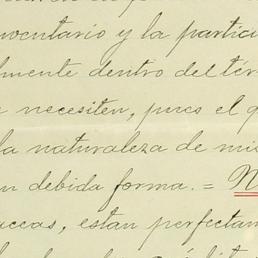 inventario y la partici
lmente dentro del tér
necesiten, pues el q
la naturaleza de mis
n debida forma. = N
accas, estan perfectam